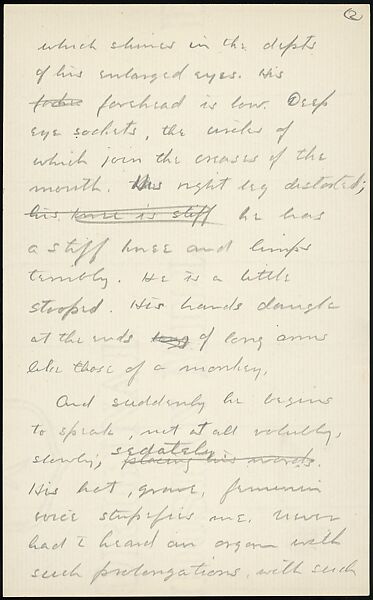 2
which shines in the depts
of his enlarged eyes. His
forehead is low. Deep
eye sockets, the circles of
which join the creases of the
mouth. His right leg distorted;
his knee is stiff he has
a stiff knee and limps
terribly. He is a little
stooped. His hands dangle
at the ends long of long arms
like those of a monkey.
And suddenly he begins
to speak, not at all volubly,
slowly, sedately
placing his words.
His hot, grave, feminin
voice stupefies me. Never
had I heard an organ with
such prolongations, with such